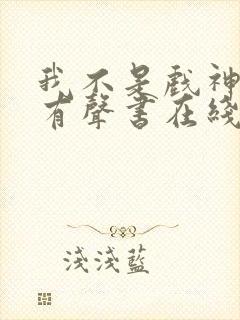 我不是戲神
有聲書在綫
淺淺藍